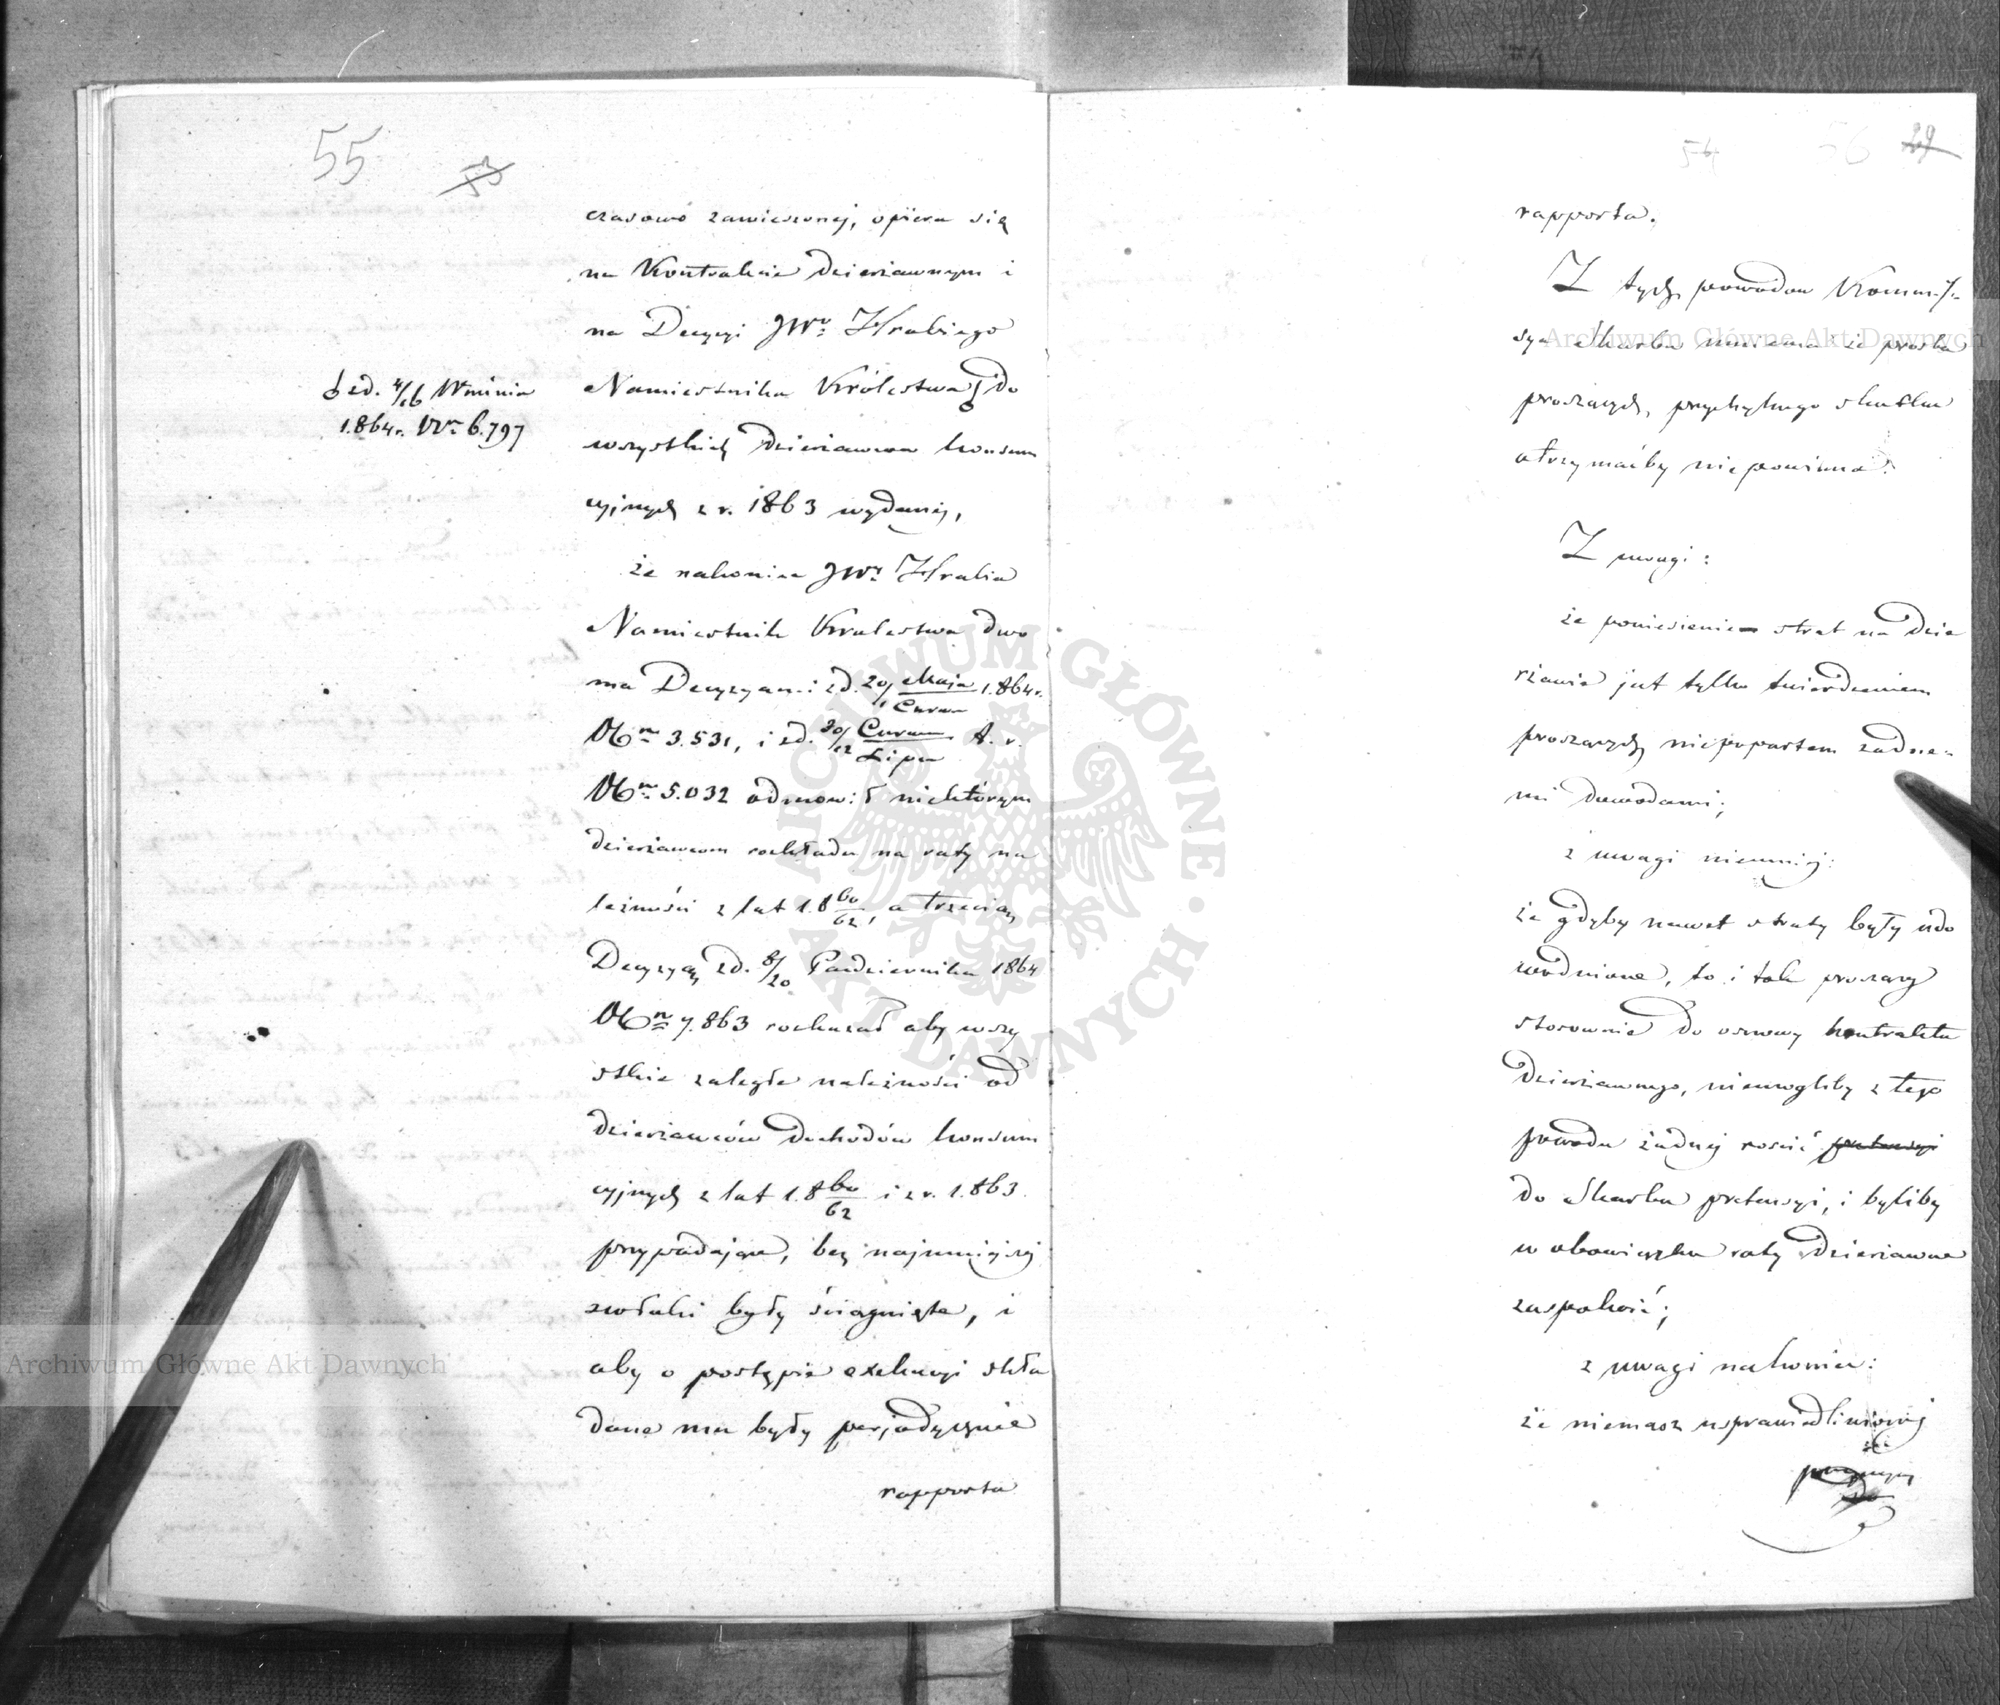 55
53
czasowo zawieszonej, opiera się
na Kontrakcie dzierżawnym i
na Decyzyi JWo Hrabiego
Namiestnika Królestwa do
zd. 4/16 Września
1.864 r. Nr 6.797
wszystkich dzierżawców konsum
cyjnych z r. 1863 wydanej,
że nakoniec JWy Hrabia
Namiestnik Królestwa dwo
ma Decyzyami zd. 20/1 Maja/Czerwca 1.864 r.
Nr 3.531, i zd. 30/12 Czerwca/Lipca t. r.
Nr 5.032 odmówił niektórym
dzierżawcom rozkładu na raty na
leżności z lat 1.860/62, a trzecią
Decyzyą zd. 8/20 Października 1864
Nr 7.863 rozkazał aby wszy
stkie zaległe należności od
dzierżawców dochodów konsum
cyjnych z lat 1.860/62 i z r. 1.863
przypadające, bez najmniejszej
zwłoki były ściągnięte, i
aby o postępie exekucyi skła
dane mu były perjodycznie
rapporta
54 56 29
rapporta.
Z tych powodów Kommis-
sya Skarbu mniema że prośba
proszących, przychylnego skutku
otrzymaćby niepowinna.
Z uwagi:
że poniesienie strat na dzie
rżawie jest tylko twierdzeniem
proszących niepopartem żadne-
mi dowodami;
z uwagi niemniej:
że gdyby nawet straty były udo
wodnione, to i tak proszący
stosownie do osnowy kontraktu
dzierżawnego, niemogliby z tego
powodu żadnej rościć pretensyi
do Skarbu pretensyi, i byliby
w obowiązku raty dzierżawne
zaspokoić;
z uwagi nakoniec:
że niemasz usprawiedliwionej
Archiwum Główne Akt Dawnych
Archiwum Główne Akt Dawnych
ARCHIWUM GŁÓWNE AKT DAWNYCH